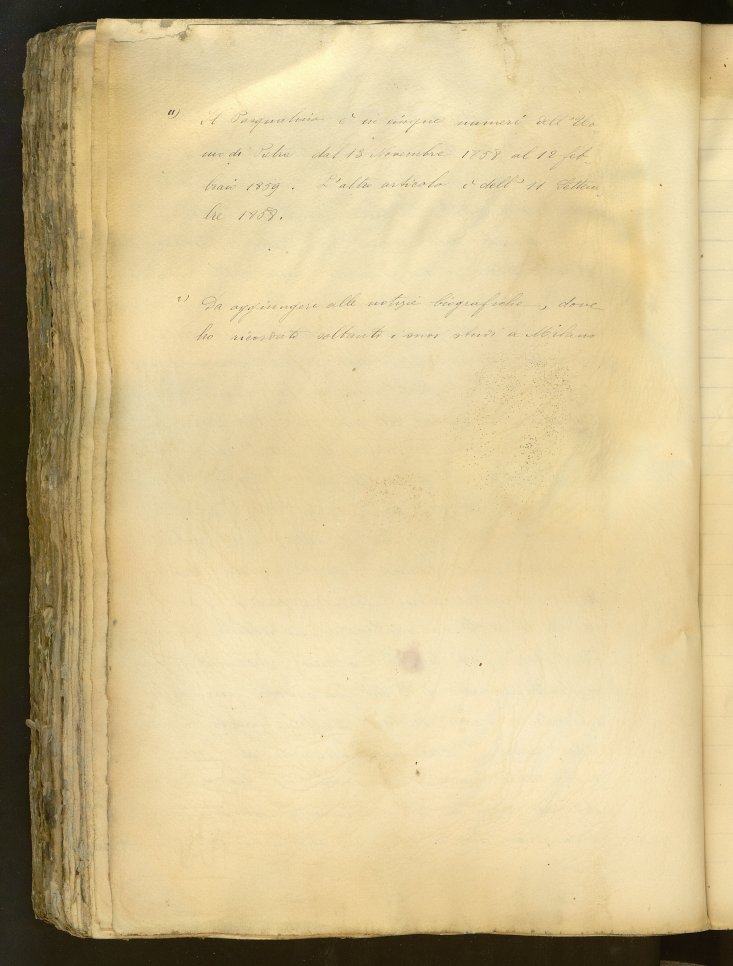 11) Il Pasqualino è in cinque numeri dell'Uo
mo di Pietra dal 13 Novembre 1858 al 12 feb-
braio 1859. L'altro articolo è dell' 11 Settem
bre 1858.
2) Da aggiungere alle notizie biografiche, dove
ho ricordato soltanto i suoi studi a Milano